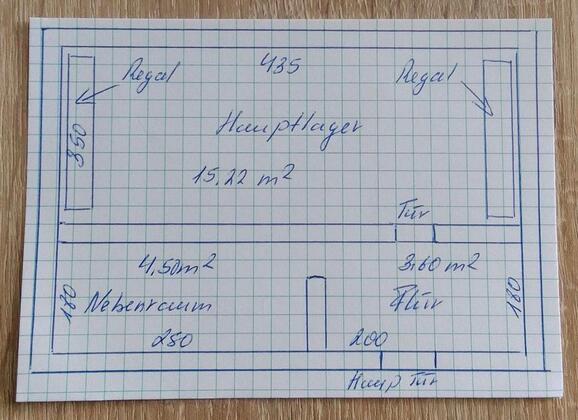 435
Regal
Regal
350
Hauptlager
15.22 m²
Tür
4,50m²
3.60 m²
180
Nebenraum
Flür
180
250
200
Haup Tür